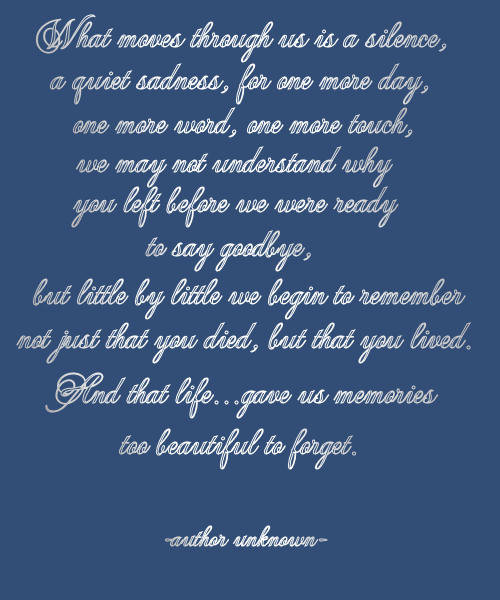 What moves through us is a silence,
a quiet sadness, for one more day,
one more word, one more touch,
we may not understand why
you left before we were ready
to say goodbye,
but little by little we begin to remember
not just that you died, but that you lived.
And that life...gave us memories
too beautiful to forget.
-author unknown-